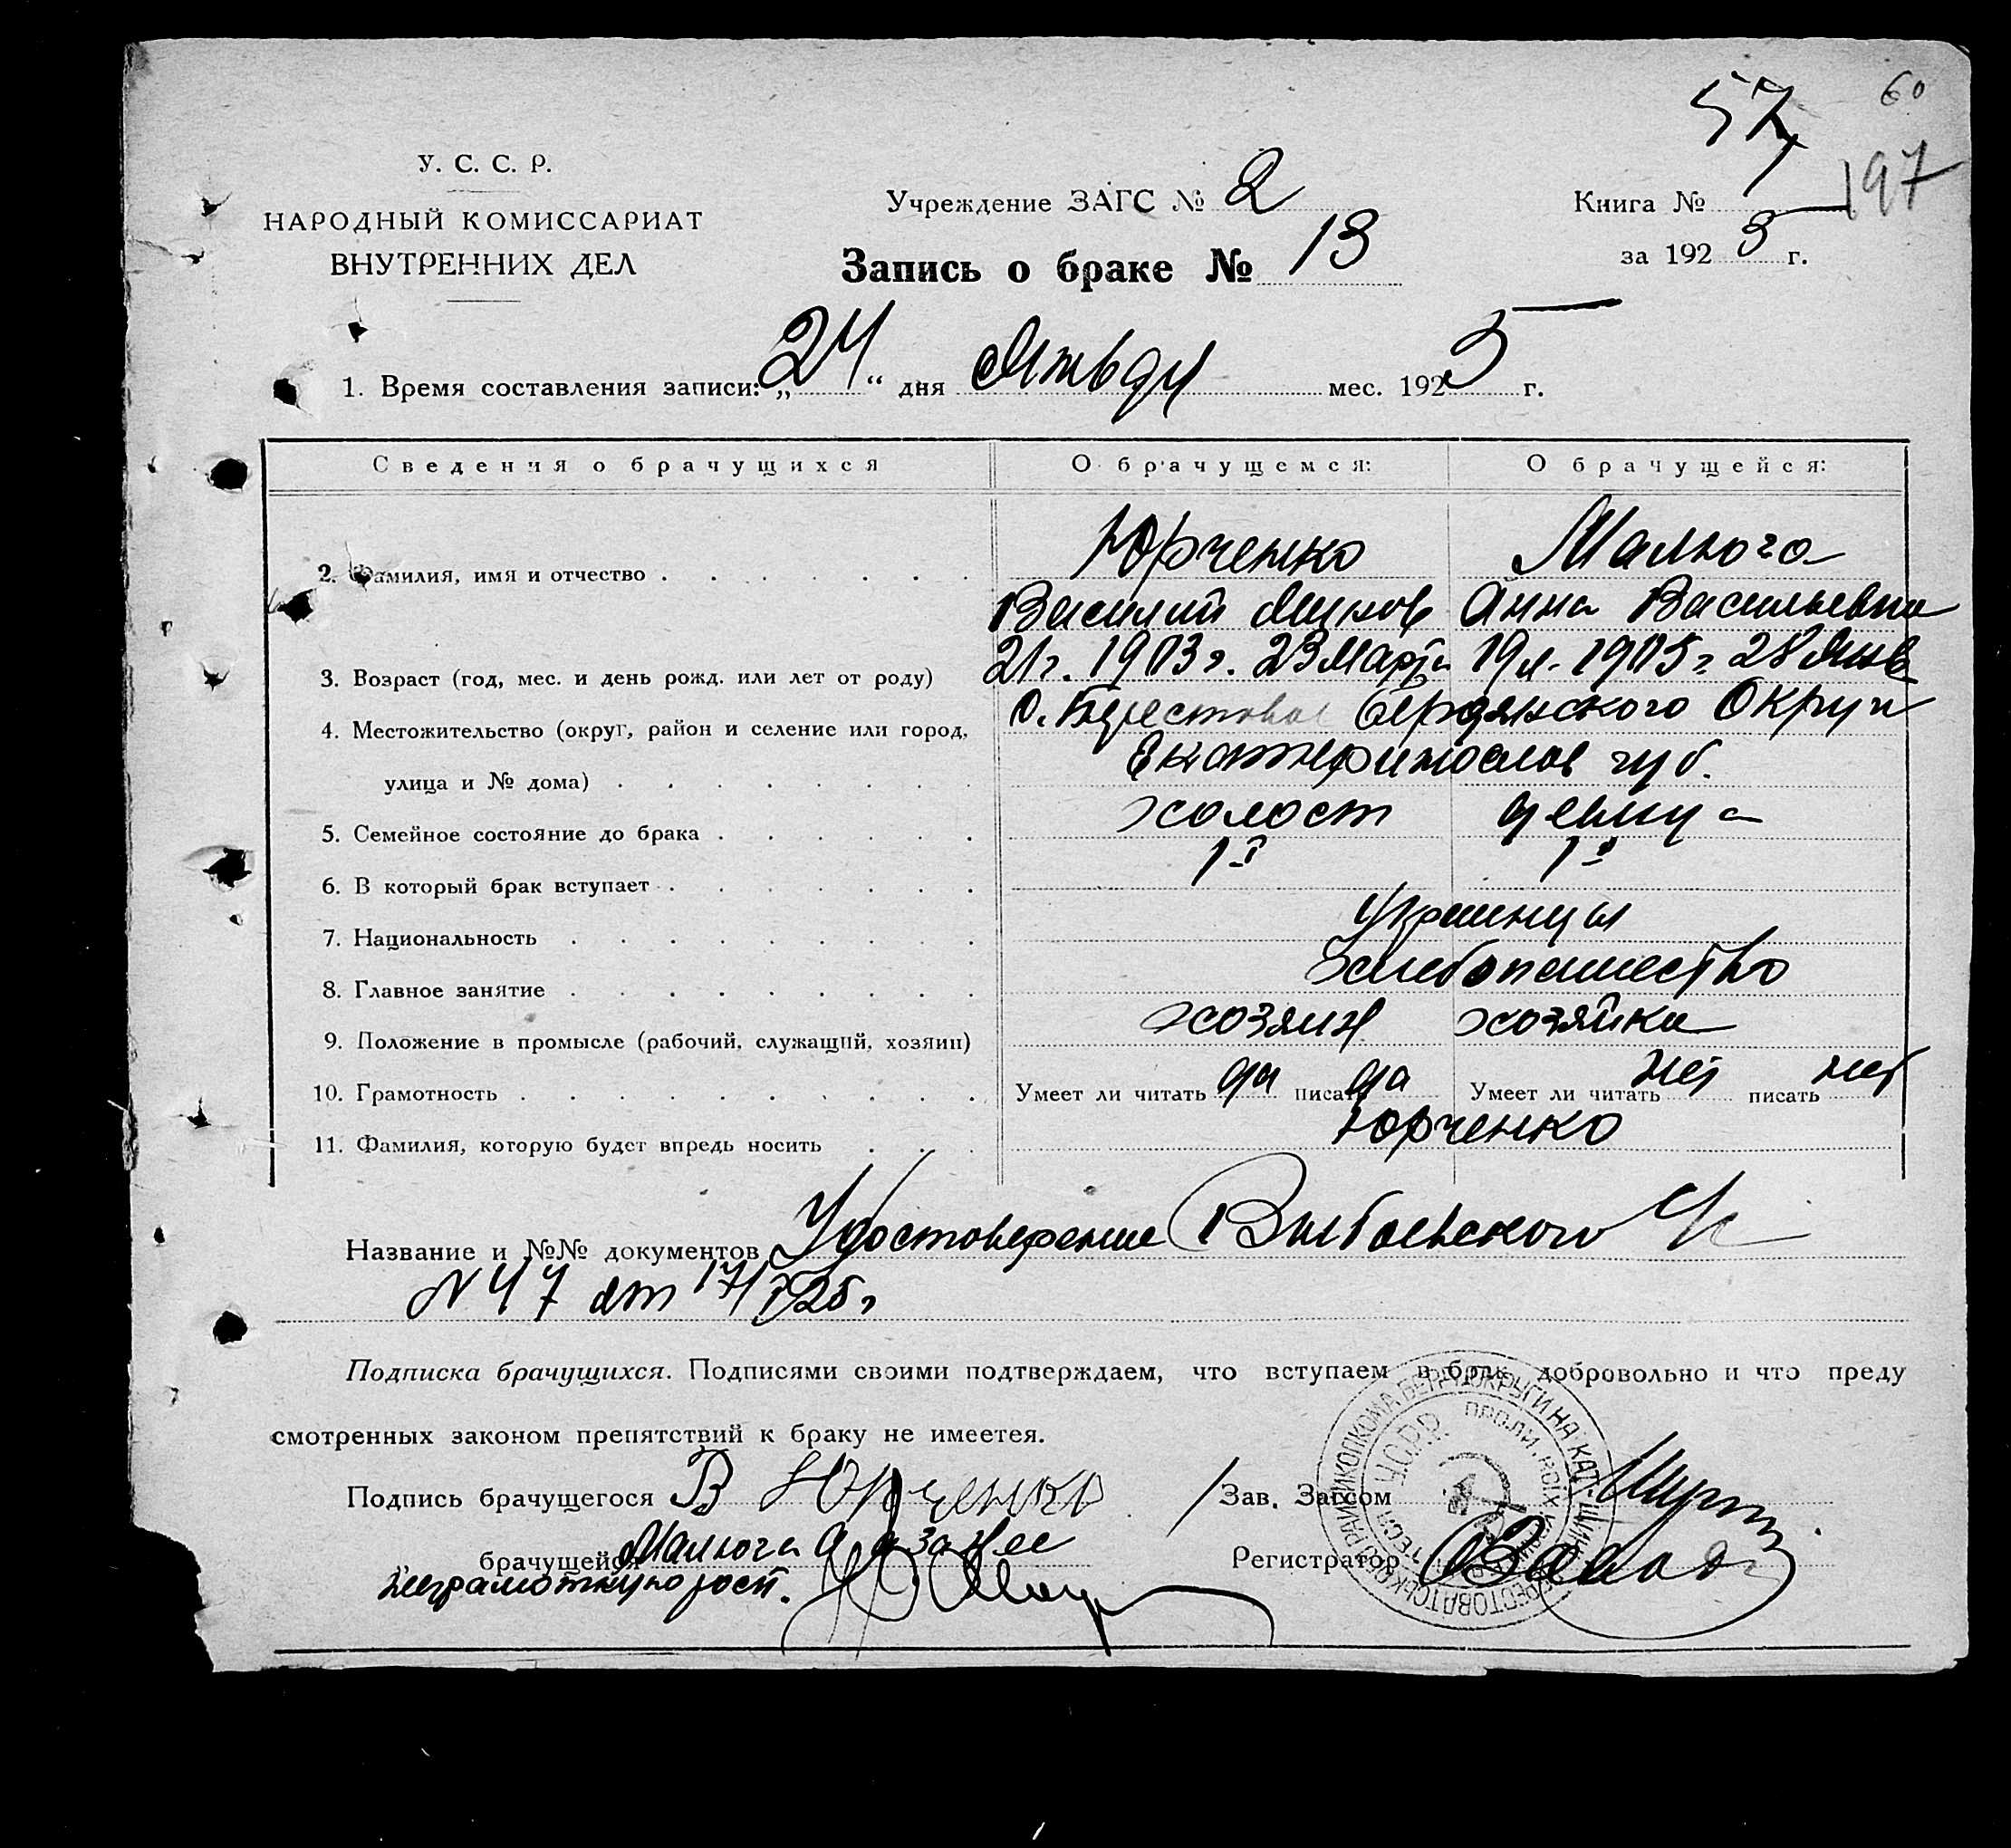 57
60
197
У. С. С. Р.
НАРОДНЫЙ КОМИССАРИАТ
ВНУТРЕННИХ ДЕЛ
Учреждение ЗАГС № 2
Книга №
за 1925 г.
Запись о браке № 13
1. Время составления записи: „24“ дня Январ мес. 1925 г.
Сведения о брачущихся О брачущемся: О брачущейся:
2. Фамилия, имя и отчество Юрченко Малюга
Василий Яковл Анна Васильевна
3. Возраст (год, мес. и день рожд. или лет от роду) 21 г. 1903 г. 23 Марта 19 л. 1905 г 28 Янв
4. Местожительство (округ, район и селение или город, с. Берестовое Бердянского Округа
улица и № дома) Екатеринослав губ.
5. Семейное состояние до брака холост девица
6. В который брак вступает 1й 1й
7. Национальность Украинцы
8. Главное занятие хлебопашество
9. Положение в промысле (рабочий, служащий, хозяин) хозяин хозяйка
10. Грамотность Умеет ли читать да писать да Умеет ли читать нет писать нет
11. Фамилия, которую будет впредь носить Юрченко
Название и №№ документов Удостоверение
N 47 от 17/I 25 г
Подписка брачущихся. Подписями своими подтверждаем, что вступаем в брак добровольно и что преду
смотренных законом препятствий к браку не имеется.
Подпись брачущегося В Юрченко Зав. Загсом
брачущейся Малюга а за нее Регистратор
неграмотную рост.